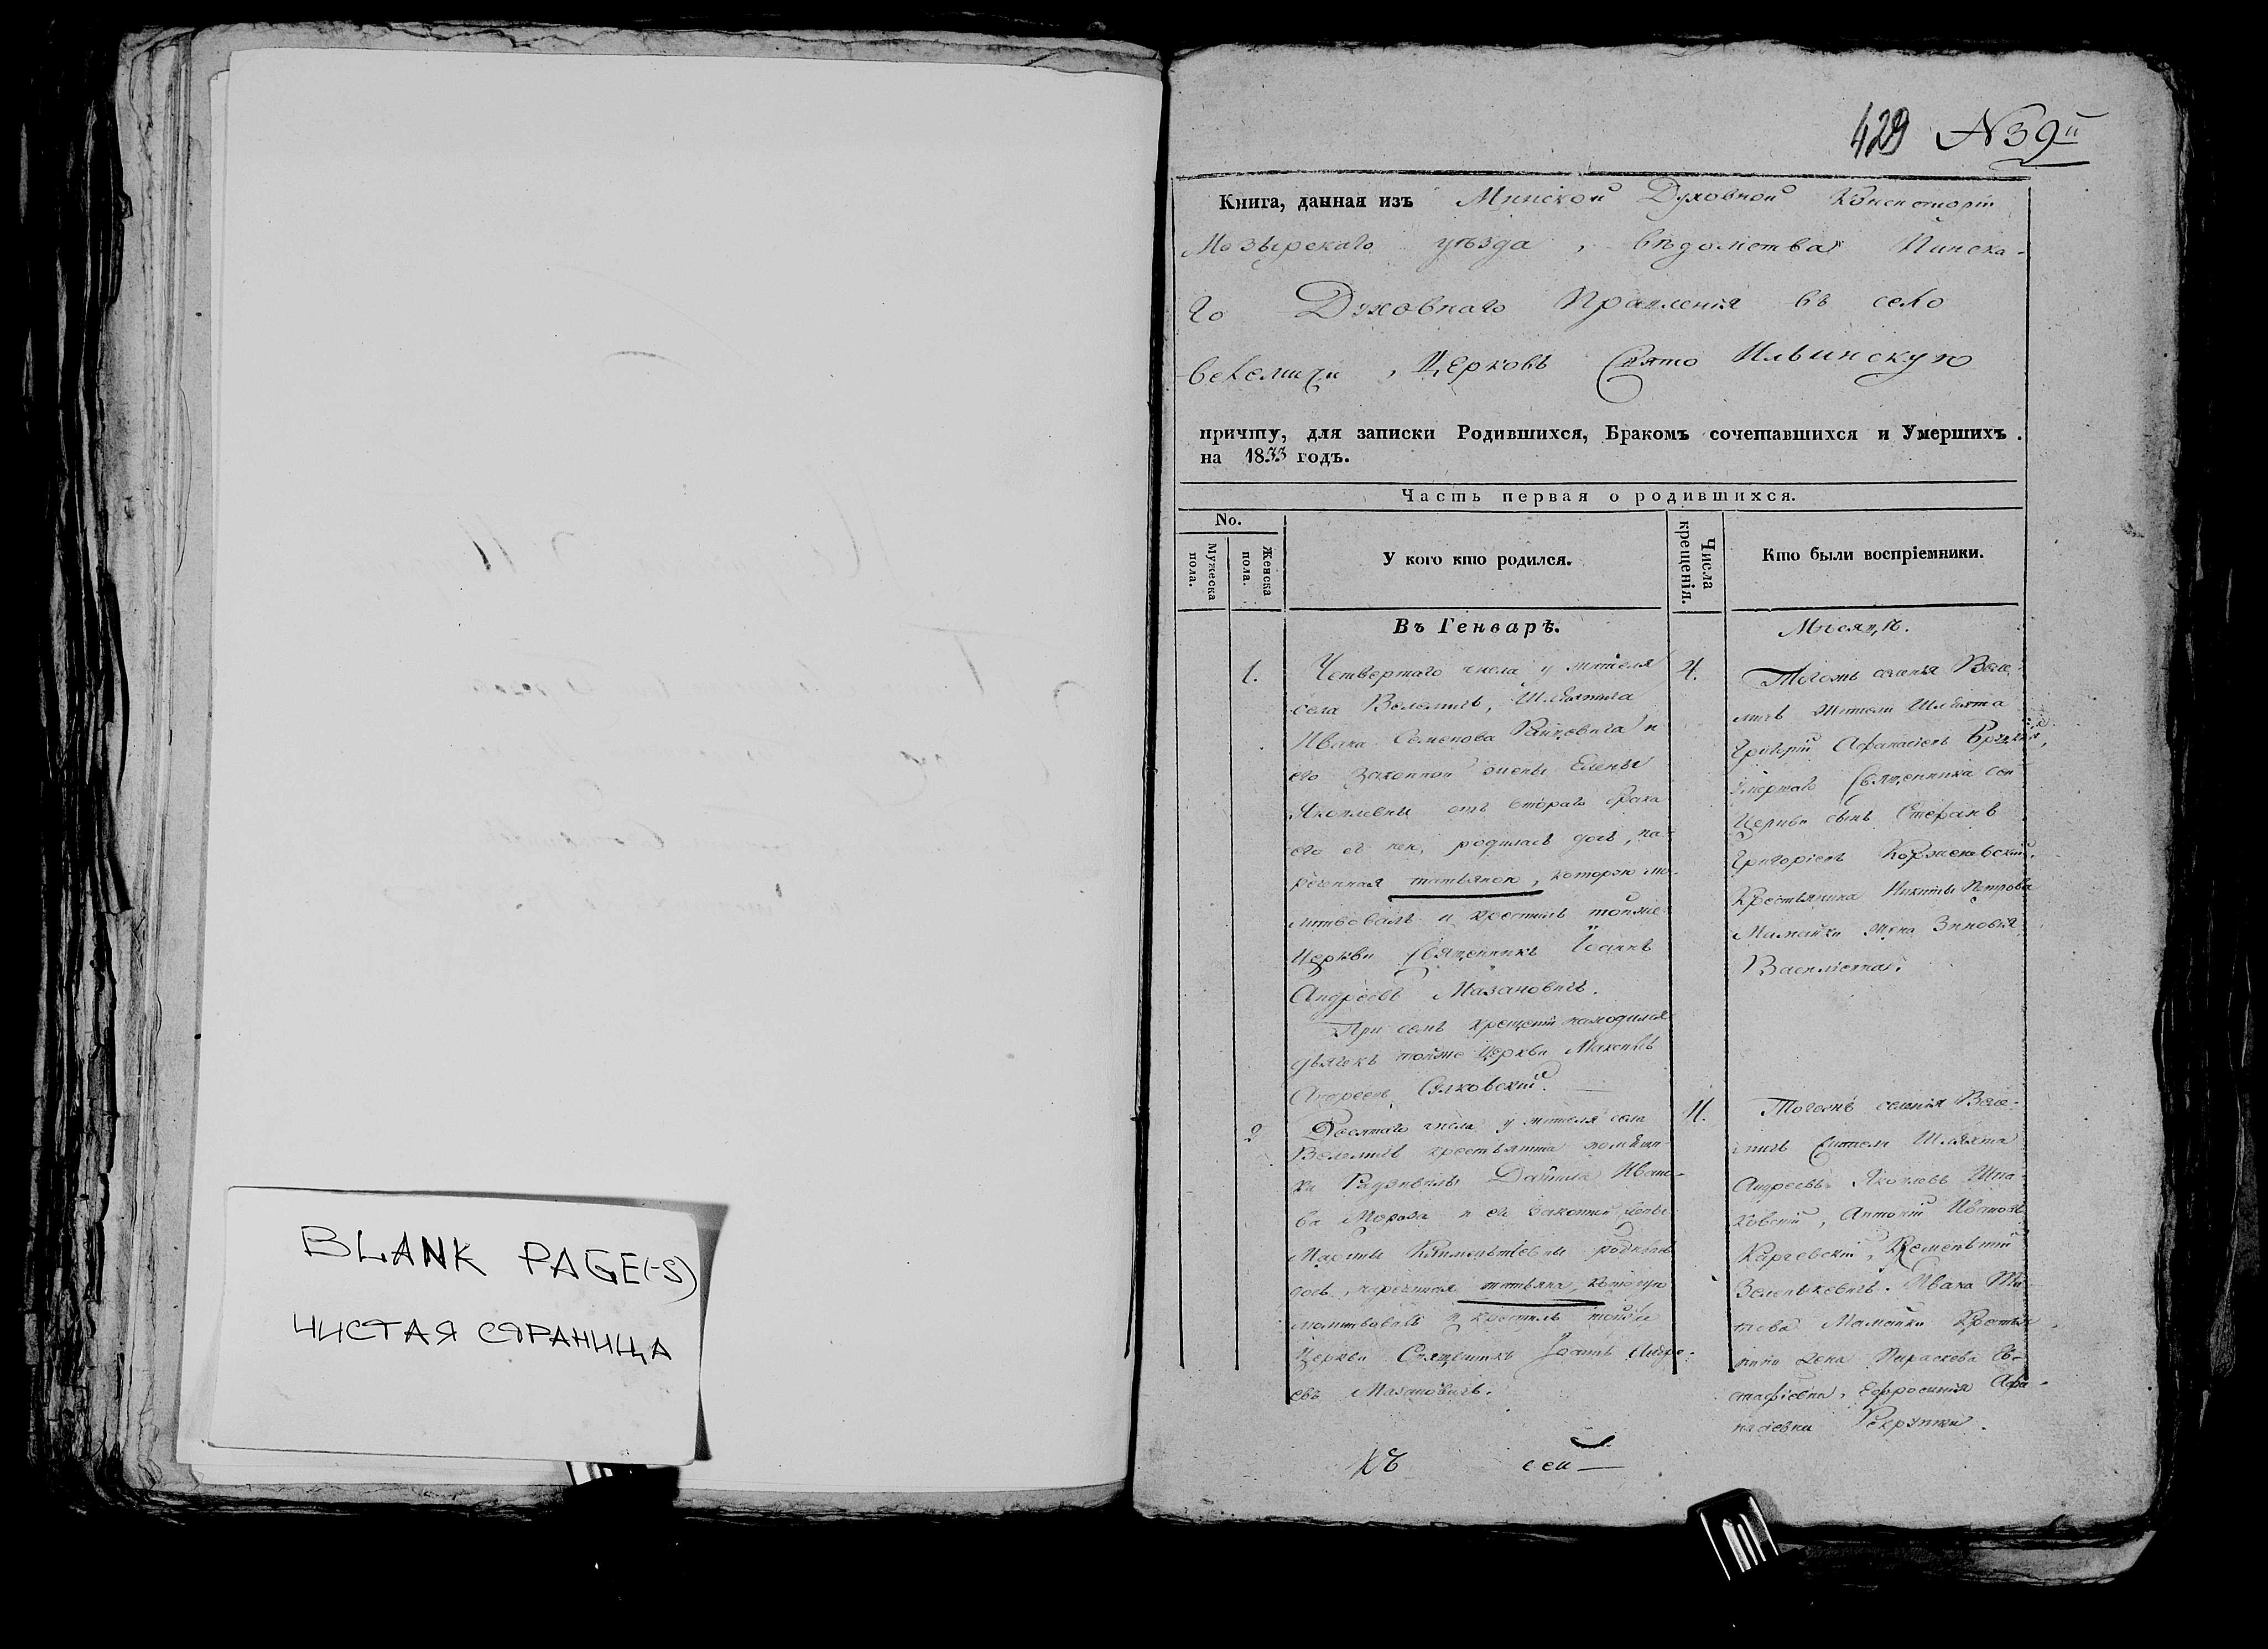 BLANK PAGE(-S)
ЧИСТАЯ СТРАНИЦА
429 N39й
Книга, данная изъ Минской Духовной Консисторіи
Мозырскаго уѣзда, вѣдомства Пинска-
го Духовнаго Правленія въ село
Велемичи, Церковь Свято Ильинскую
причту, для записки Родившихся, Бракомъ сочетавшихся и Умершихъ.
на 1833 годъ.
Часть первая о родившихся.
No.
Мужеска пола.
Женска пола.
У кого кто родился.
Числа крещенія.
Кто были воспріемники.
Въ Генварѣ.
Мѣсяцѣ.
1.
Четвертаго числа у жителя
села Велемичъ, Шляхтича
Ивана Семенова и
его законной жены Елены
Яковлевны отъ втораго брака
его съ нею, родилась дочь, на-
реченная татьяною, которую мо-
литвовалъ и крестилъ тойже
Церкви Священникъ Іоаннъ
Андреевъ Мазановичъ.
При семъ крещеніи находился
дьячекъ тойже Церкви Максимъ
Андреевъ
4.
Тогожъ селенія Веле-
мичъ жители Шляхта
Григорій Афанасіевъ
умершаго Священника сей
Церкви сынъ Стефанъ
Григоріевъ Корженевскій.
Крестьянина Никиты Петрова
Мамайки жена Зиновія
Васильевна.
2
Десятаго числа у жителя села
Велемичъ крестьянина помѣщи-
ка Радзивилы Даніила Ивано-
ва Мороза и его законной жены
Марты Климентіевны родилась
дочь, нареченная татьяна, которую
молитвовалъ и крестилъ тойже
Церкви Священникъ Іоаннъ Андре-
евъ Мазановичъ.
11.
Тогожъ селенія Веле-
мичъ жители Шляхта
Андреевъ Яковлевъ Шпа-
ковскій, Антоній Ивановъ
Карчевскій, Климентій
Зеленкевичъ. Ивана
Мамайки Крестья-
нина жена Параскева Ев-
стафіевна, Ефросинія Афа-
насіевна
Къ сей